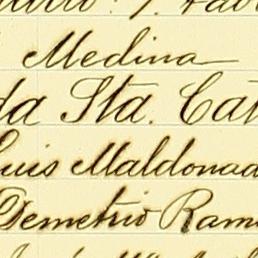 Medina
da Sta. Cat
Luis Maldonad
Demetrio Ram